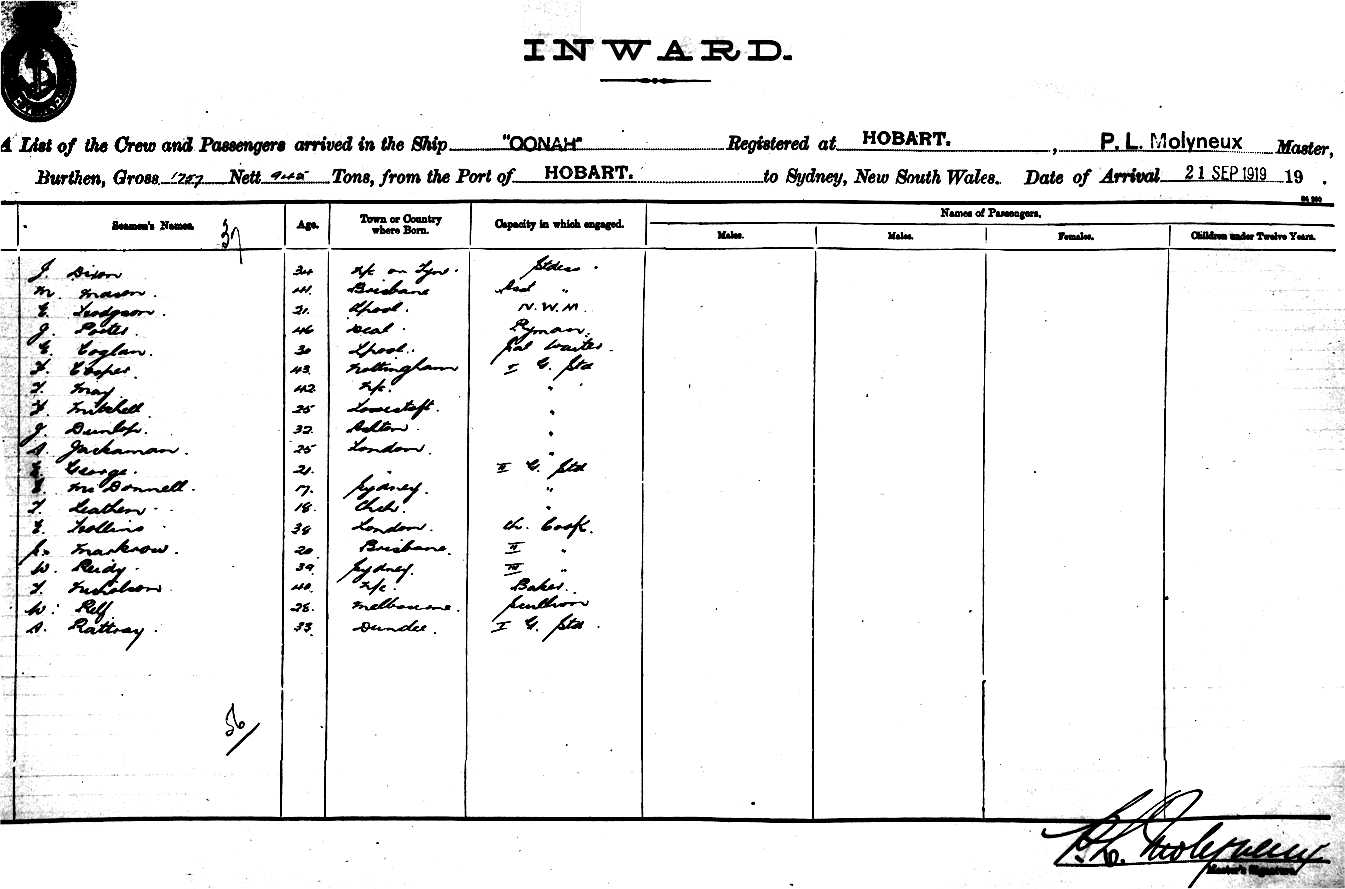 INWARD.
A List of the Crew and Passengers arrived in the Ship "OONAH" Registered at HOBART. , P. L. Molyneux Master,
Burthen, Gross 1757 Nett 945 Tons, from the Port of HOBART. to Sydney, New South Wales. Date of Arrival 21 SEP 1919 19 .
Names of Passengers.
Seamen's Names. Age. Town or Country where Born. Capacity in which engaged. Males. Males. Females. Children under Twelve Years.
37
J. Dixon 34 N/c on Tyne. Stdess.
M. Mason. 41. Brisbane Asd "
E. Hodgson. 21. Lpool. N.W.M.
J. Porter. 46 Deal. Pyman.
E. Coglan. 30 Lpool. Sal Waiter.
Cooper. 43. Nottingham I G. Std
May 42. N/c. "
Mitchell. 25 Lowestoft. "
J. Dunlop. 32. Ashton. "
A. Jackaman. 25 London. "
George. 21. " II G. Std
McDonnell. 17. Sydney. "
Leathem. 18. Chch. "
Hollins 38 London. Ch. Cook.
Markrow. 20 Brisbane. II "
W. Reidy. 39. Sydney. III "
Nicholson 40. N/c. Baker.
W. Relf 28. Melbourne. Scullion
A. Rattray. 33. Dundee. I G. Std.
56/
P. L. Molyneux
Master's Signature.